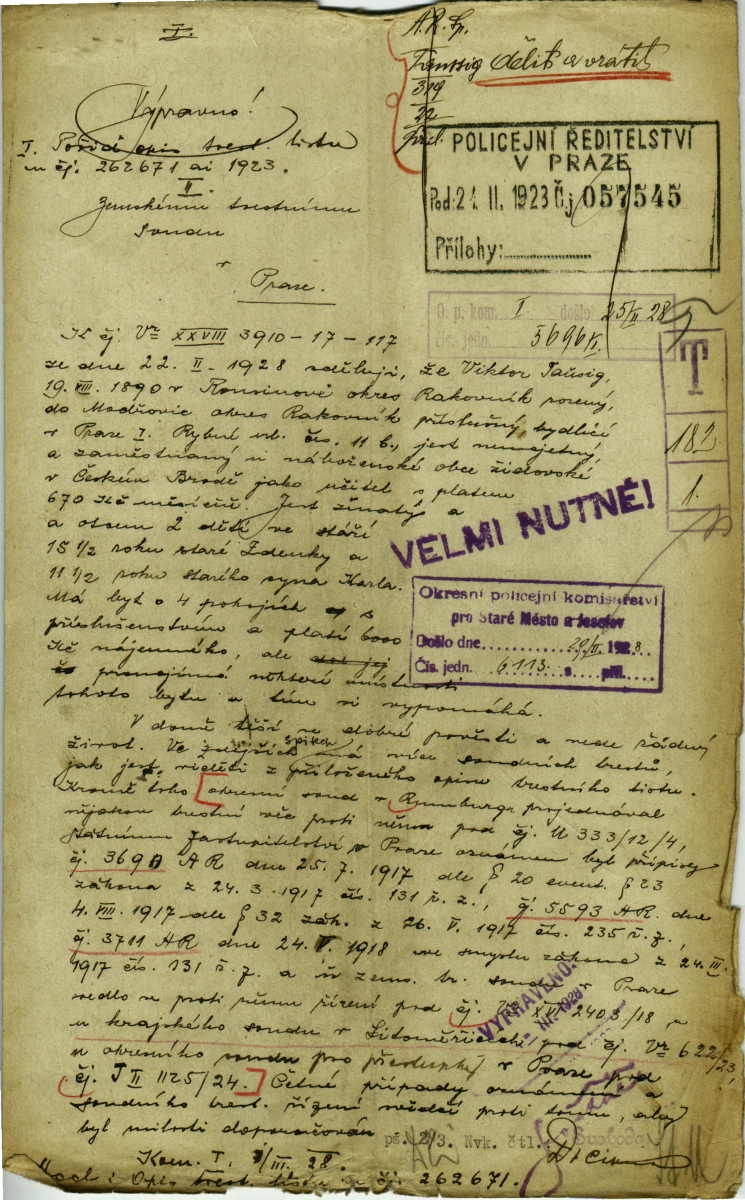 I.
A. R. Sp.
Taussig
dělit a vrátit
319
22
příl.
Výpravno!
I. Pořídí opis trest. listu
čj. 262671 ai 1923.
II.
Zemskému trestnímu
soudu
v
Praze.
POLICEJNÍ ŘEDITELSTVÍ
V PRAZE
Pod: 24 II. 1928 Čj 057545
Přílohy:
O. p. kom. I došlo 25/II 28
Čís. jedn. 5696/II.
T
182
1.
K čj. Vr XXVIII 3910-17-117
ze dne 22. II. 1928 sděluji, že Viktor Taüsig,
19. VIII. 1890 v Rousínově okres Rakovník rozený,
do Modřovic okres Rakovník příslušný, bydlící
v Praze I. Rybná ul. čís. 11 b., jest nemajetný
a zaměstnaný u náboženské obce židovské
v Českém Brodě jako učitel s platem
670 Kč měsíčně. Jest ženatý a
a otcem 2 dětí ve stáří
15 1/2 roku staré Zdenky a
11 1/2 roku starého syna Karla.
Má byt o 4 pokojích s
příslušenstvím a platí 6000
Kč nájemného, ale
pronajímá některé místnosti
tohoto bytu a tím si vypomáhá.
VELMI NUTNÉ!
Okresní policejní komisařství
pro Staré Město a Josefov
Došlo dne 29/II. 1928
Čís. jedn. 6113. s příl.
V domě těší se dobré pověsti a vede řádný
život. Ve spisech má více soudních trestů,
jak jest viděti z přiloženého opisu trestního listu.
Kromě toho okresní soud v Rumburgu projednával
nějakou trestní věc proti němu pod čj. U 333/12/4,
státnímu zastupitelství v Praze oznámen byl přípisy
čj. 3690 AR dne 25. 7. 1917 dle § 20 event. § 23
zákona z 24. 3. 1917 čís. 131 ř. z., čj. 5593 AR. dne
4. VIII. 1917 dle § 32 zák. z 26. V. 1917 čís. 235 ř. z.,
čj. 3711 AR dne 24. V. 1918 ve smyslu zákona z 24. III.
1917 čís. 131 ř. z. a u zems. tr. soudu v Praze
vedlo se proti němu řízení pod čj. Vr XXVI 2403/18, a
u krajského soudu v Litoměřicích pod čj. Vr 622/23,
u okresního soudu pro přestupky v Praze pod
čj. T II 1125/24. Četné případy oznámení a
soudního trest. řízení svědčí proti tomu, aby
byl milosti doporučován
VYPRAVENO:
III. 1928
pís. 2/3. Nvk. čtl. Svoboda
Kom. I. 1/III. 28.
Opis trest. listu čj. 262671.